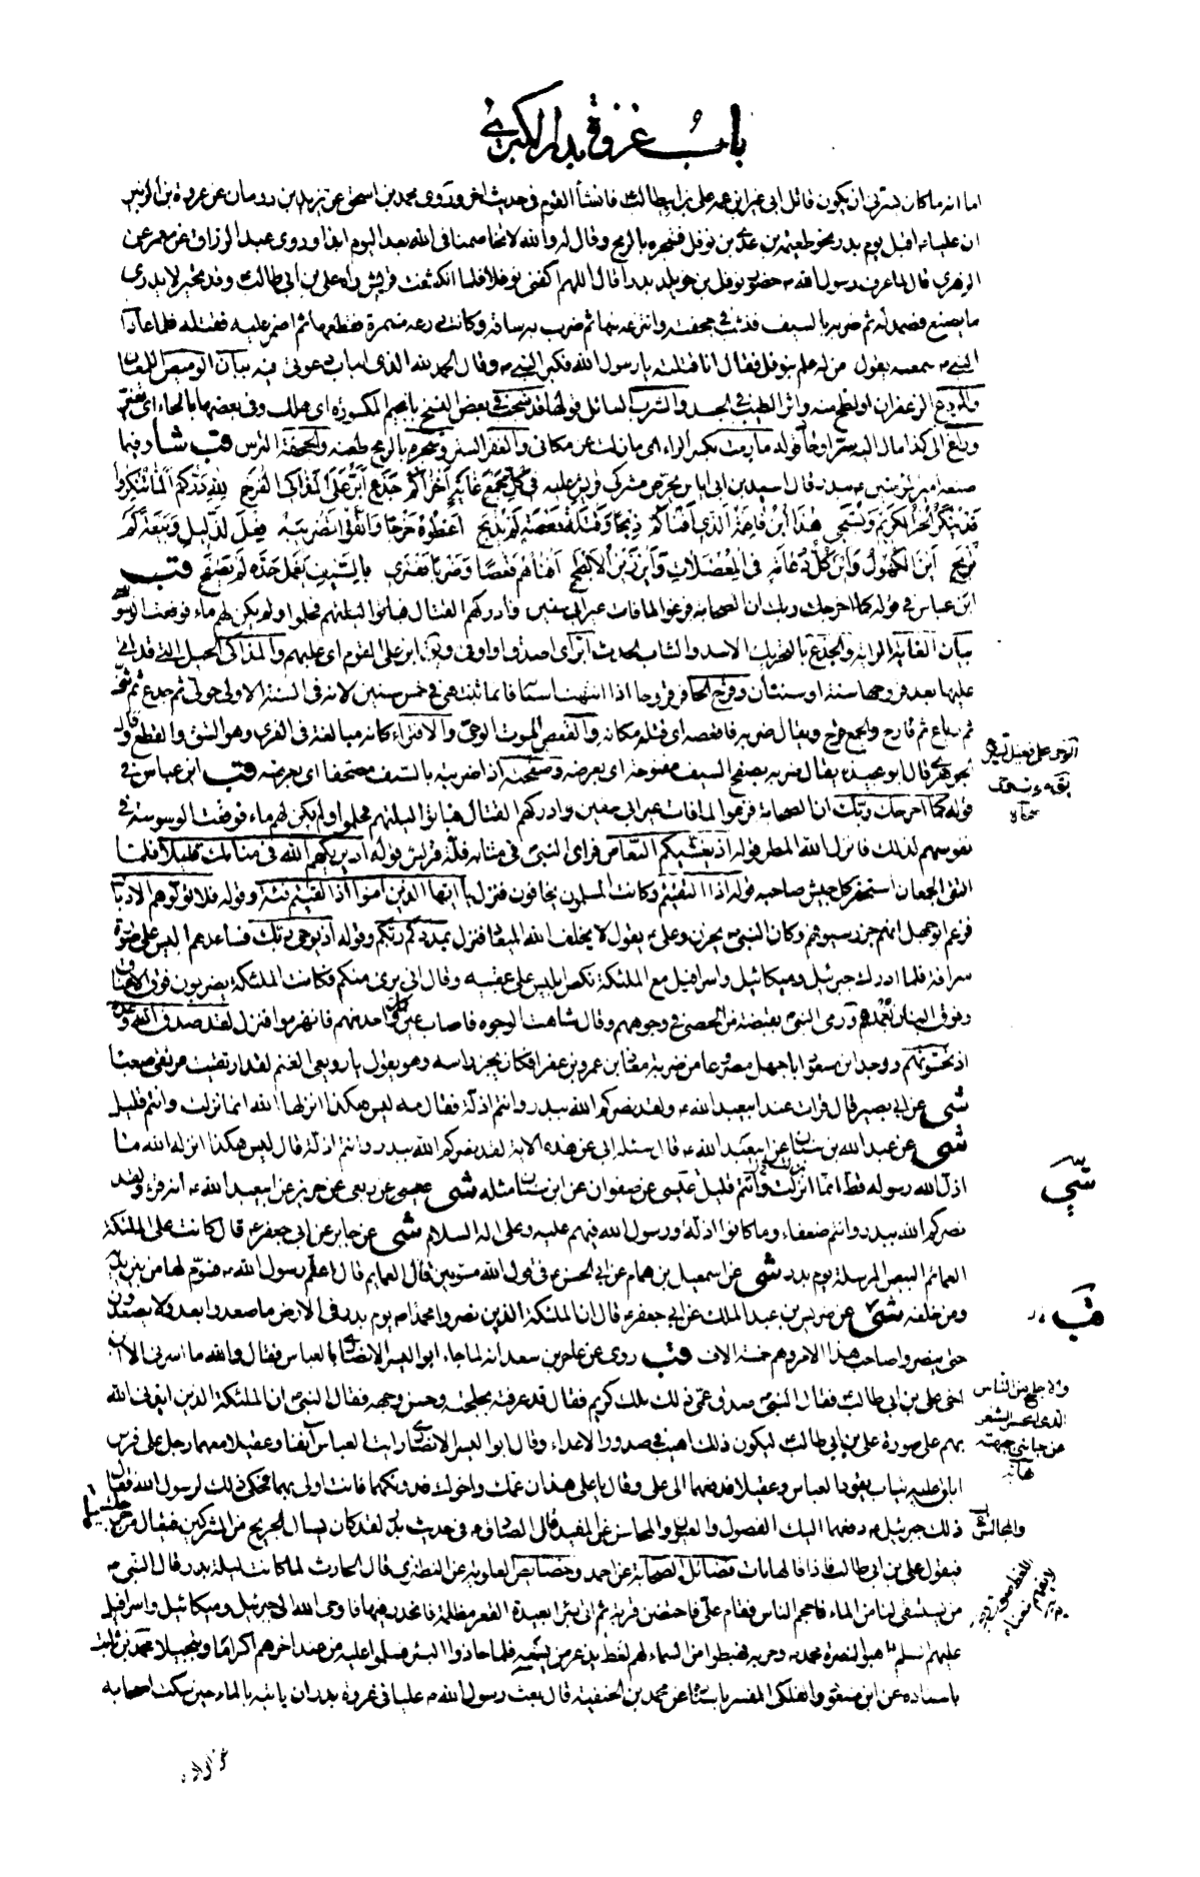 باب غزوة بدر الكبرى
اما انه ما كان يسرني ان يكون قاتل ابي غير ابن عمه علي بن ابي طالب فانشأ القوم في حديث اخر وروى محمد بن اسحق عن يزيد بن رومان عن عروة بن الزبير
ان عليا ع اقبل يوم بدر نحو طعيمة بن عدي بن نوفل فشجره بالرمح وقال له والله لا تخاصمنا في الله بعد اليوم ابدا وروى عبد الرزاق عن معمر عن
الزهري قال لما عرف رسول الله ص حضور نوفل بن خويلد بدرا قال اللهم اكفني نوفلا فلما انكشفت قريش راه علي بن ابي طالب وقد تحير لا يدري
ما يصنع فصمد له ثم ضربه بالسيف فنشب في حجفته وانتزعه منها ثم ضرب به ساقه وكانت درعه مشمرة فقطعها ثم اجهز عليه فقتله فلما عاد الى
النبي ص سمعه يقول من له علم بنوفل فقال انا قتلته يا رسول الله فكبر النبي ص وقال الحمد لله الذي اجاب دعوتي فيه بيان الوميض اللمعان
والردع الزعفران او لطخ منه واثر الطيب في الجسد
قد شجت في بعض النسخ بالجيم المكسورة اي هلك وفي بعضها بالحاء اي
قوله ما رمت بكسر الراء اي ما زلت عن مكاني
وشجره بالرمح طعنه والحجفة الترس قب شا وفيما
صنعه امير المؤمنين ع ببدر قال اسيد بن ابي اياس يحرض مشركي قريش عليه في كل مجمع غاية اخزاكم جذع ابر على المذاكي القرح لله دركم المّا تنكروا
قد ينكر الحر الكريم ويستحي هذا ابن فاطمة الذي افناكم ذبحا وقتلة قعصة لم يذبح اعطوه خرجا واتقوا تضريبه فعل الذليل وبيعة لم
تربح اين الكهول واين كل دعامة في المعضلات واين زين الابطح افناهم قعصا وضربا يفتري بالسيف يعمل حده لم يصفح قب
ابن عباس في قوله كما اخرجك ربك ان الصحابة فزعوا لما فات عير ابي سفين وادركهم القتال فباتوا ليلتهم فحلموا ولم يكن لهم ماء فوقعت الوسو
بيان الغاية الراية والجذع بالتحريك الاسد والشاب الحدث ابر اي اصدق او اوفى ويقال ابر على القوم اي غلبهم والمذاكي الخيل التي قد اتى
عليها بعد قروحها سنة او سنتان وقرح الحافر قروحا اذا انتهت اسنانه فانما تنتهي في خمس سنين لانه في السنة الاولى حولي ثم جذع ثم ثني
ثم رباع ثم قارح والجمع قرح ويقال ضربه فاقعصه اي قتله مكانه والقعص الموت الوحي والافتراء كانه مبالغة في الفري وهو الشق والقطع وقال
الجوهري قال ابو عبيدة يقال ضربه بصفح السيف مفتوحة اي بعرضه وصفحته اذا ضربته بالسيف مصفحا اي بعرضه قب ابن عباس في
قوله كما اخرجك ربك ان الصحابة فزعوا لما فات عير ابي سفين وادركهم القتال فباتوا ليلتهم فحلموا ولم يكن لهم ماء فوقعت الوسوسة في
نفوسهم لذلك فانزل الله المطر قوله اذ يغشيكم النعاس فراى النبي ص في منامه قلة قريش قوله اذ يريكهم الله في منامك قليلا فلما
التقى الجمعان استحقر كل جيش صاحبه قوله اذا التقيتم وكانت المسلمون يخافون فنزل يا ايها الذين امنوا اذا لقيتم فئة وقوله فلا تولوهم الادبا
فزعم ابو جهل انهم جزر سيوفهم وكان النبي ص يحزن وعلي ع يقول لا يخلف الله الميعاد فنزل يمددكم ربكم وقوله اذ يوحي ربك فساعدهم ابليس على صورة
سراقة فلما ادرك جبرئيل وميكائيل واسرافيل مع الملئكة نكص ابليس على عقبيه وقال اني بريء منكم فكانت الملئكة يضربون فوق الاعناق
وفوق البنان بعمدهم ورمى النبي ص بقبضة من الحصى في وجوههم وقال شاهت الوجوه فاصاب عين كل واحد منهم فانهزموا فنزل لقد صدق الله وعده
اذ تحسونهم ووجد ابن مسعود ابا جهل مصروعا من ضربة معاذ بن عمرو بن عفرا فكان يجز راسه وهو يقول يا رويعي الغنم لقد ارتقيت مرتقى صعبا
شي عن ابي بصير قال قرات عند ابي عبد الله ع ولقد نصركم الله ببدر وانتم اذلة فقال مه ليس هكذا انزلها الله انما نزلت وانتم قليل
شي عن عبد الله بن سنان عن ابي عبد الله ع قال سئله ابي عن هذه الاية لقد نصركم الله ببدر وانتم اذلة قال ليس هكذا انزله الله ما
اذل الله رسوله قط انما انزلت وانتم قليل عيسى عن صفوان عن ابن سنان مثله شي عن ربعي عن حريز عن ابي عبد الله ع انه قرء ولقد
نصركم الله ببدر وانتم ضعفاء وما كانوا اذلة ورسول الله فيهم عليه وعلى اله السلام شي عن جابر عن ابي جعفر ع قال كانت على الملئكة
العمائم البيض المرسلة يوم بدر شي عن اسمعيل بن همام عن ابي الحسن ع في قول الله مسومين قال العمايم قال اعتم رسول الله ص فسوم لها من بين يديه
ومن خلفه شي عن ضريس بن عبد الملك عن ابي جعفر ع قال ان الملئكة الذين نصروا محمدا ص يوم بدر في الارض ما صعدوا بعد ولا يصعدون
حتى ينصروا صاحب هذا الامر وهم خمسة الاف قب روى عن علي ع بن سعد انه لما جاء ابو اليسر الانصاري بالعباس فقال والله ما اسرني الا ابن
اخي علي بن ابي طالب فقال النبي ص صدق عمي ذلك ملك كريم فقال قد عرفته بجلحته وحسن وجهه فقال النبي ص ان الملئكة الذين ايدني الله
بهم على صورة علي بن ابي طالب ليكون ذلك اهيب في صدور الاعداء وقال ابو اليسر الانصاري رايت العباس آنفا وعقيلا معهما رجل على فرس
ابلق عليه ثياب يقود العباس وعقيلا فدفعهما الى علي وقال يا علي هذان عمك واخوك فدونكهما فانت اولى بهما فحكى ذلك لرسول الله فقال
ذلك جبرئيل ع دفعهما اليك الفصول والعيون والمحاسن عن المفيد قال الصادق ع في حديث بدر لقد كان يسال الجريح من المشركين فيقال من جرحك
فيقول علي بن ابي طالب فاذا قالها مات فضائل الصحابة عن احمد وخصائص العلوية عن النطنزي قال الحارث لما كانت ليلة بدر قال النبي ص
من يستقي لنا من الماء فاحجم الناس فقام علي فاحتضن قربة ثم اتى بئرا بعيدة القعر مظلمة فانحدر فيها فاوحى الله الى جبرئيل وميكائيل واسرافيل
عليهم السلم تاهبوا لنصرة محمد ص وحزبه فهبطوا من السماء لهم لغط يذعر من يسمعه فلما حاذوا البئر سلموا عليه من عند اخرهم اكراما وتبجيلا محمد بن ثابت
باسناده عن ابن مسعود والفلكي المفسر باسناده عن محمد بن الحنفية قال بعث رسول الله ص عليا في غزوة بدر ان ياتيه بالماء حين سكت اصحابه
شي
قب
والاجلح من الناس
الذي انحسر الشعر
عن جانبي جبهته